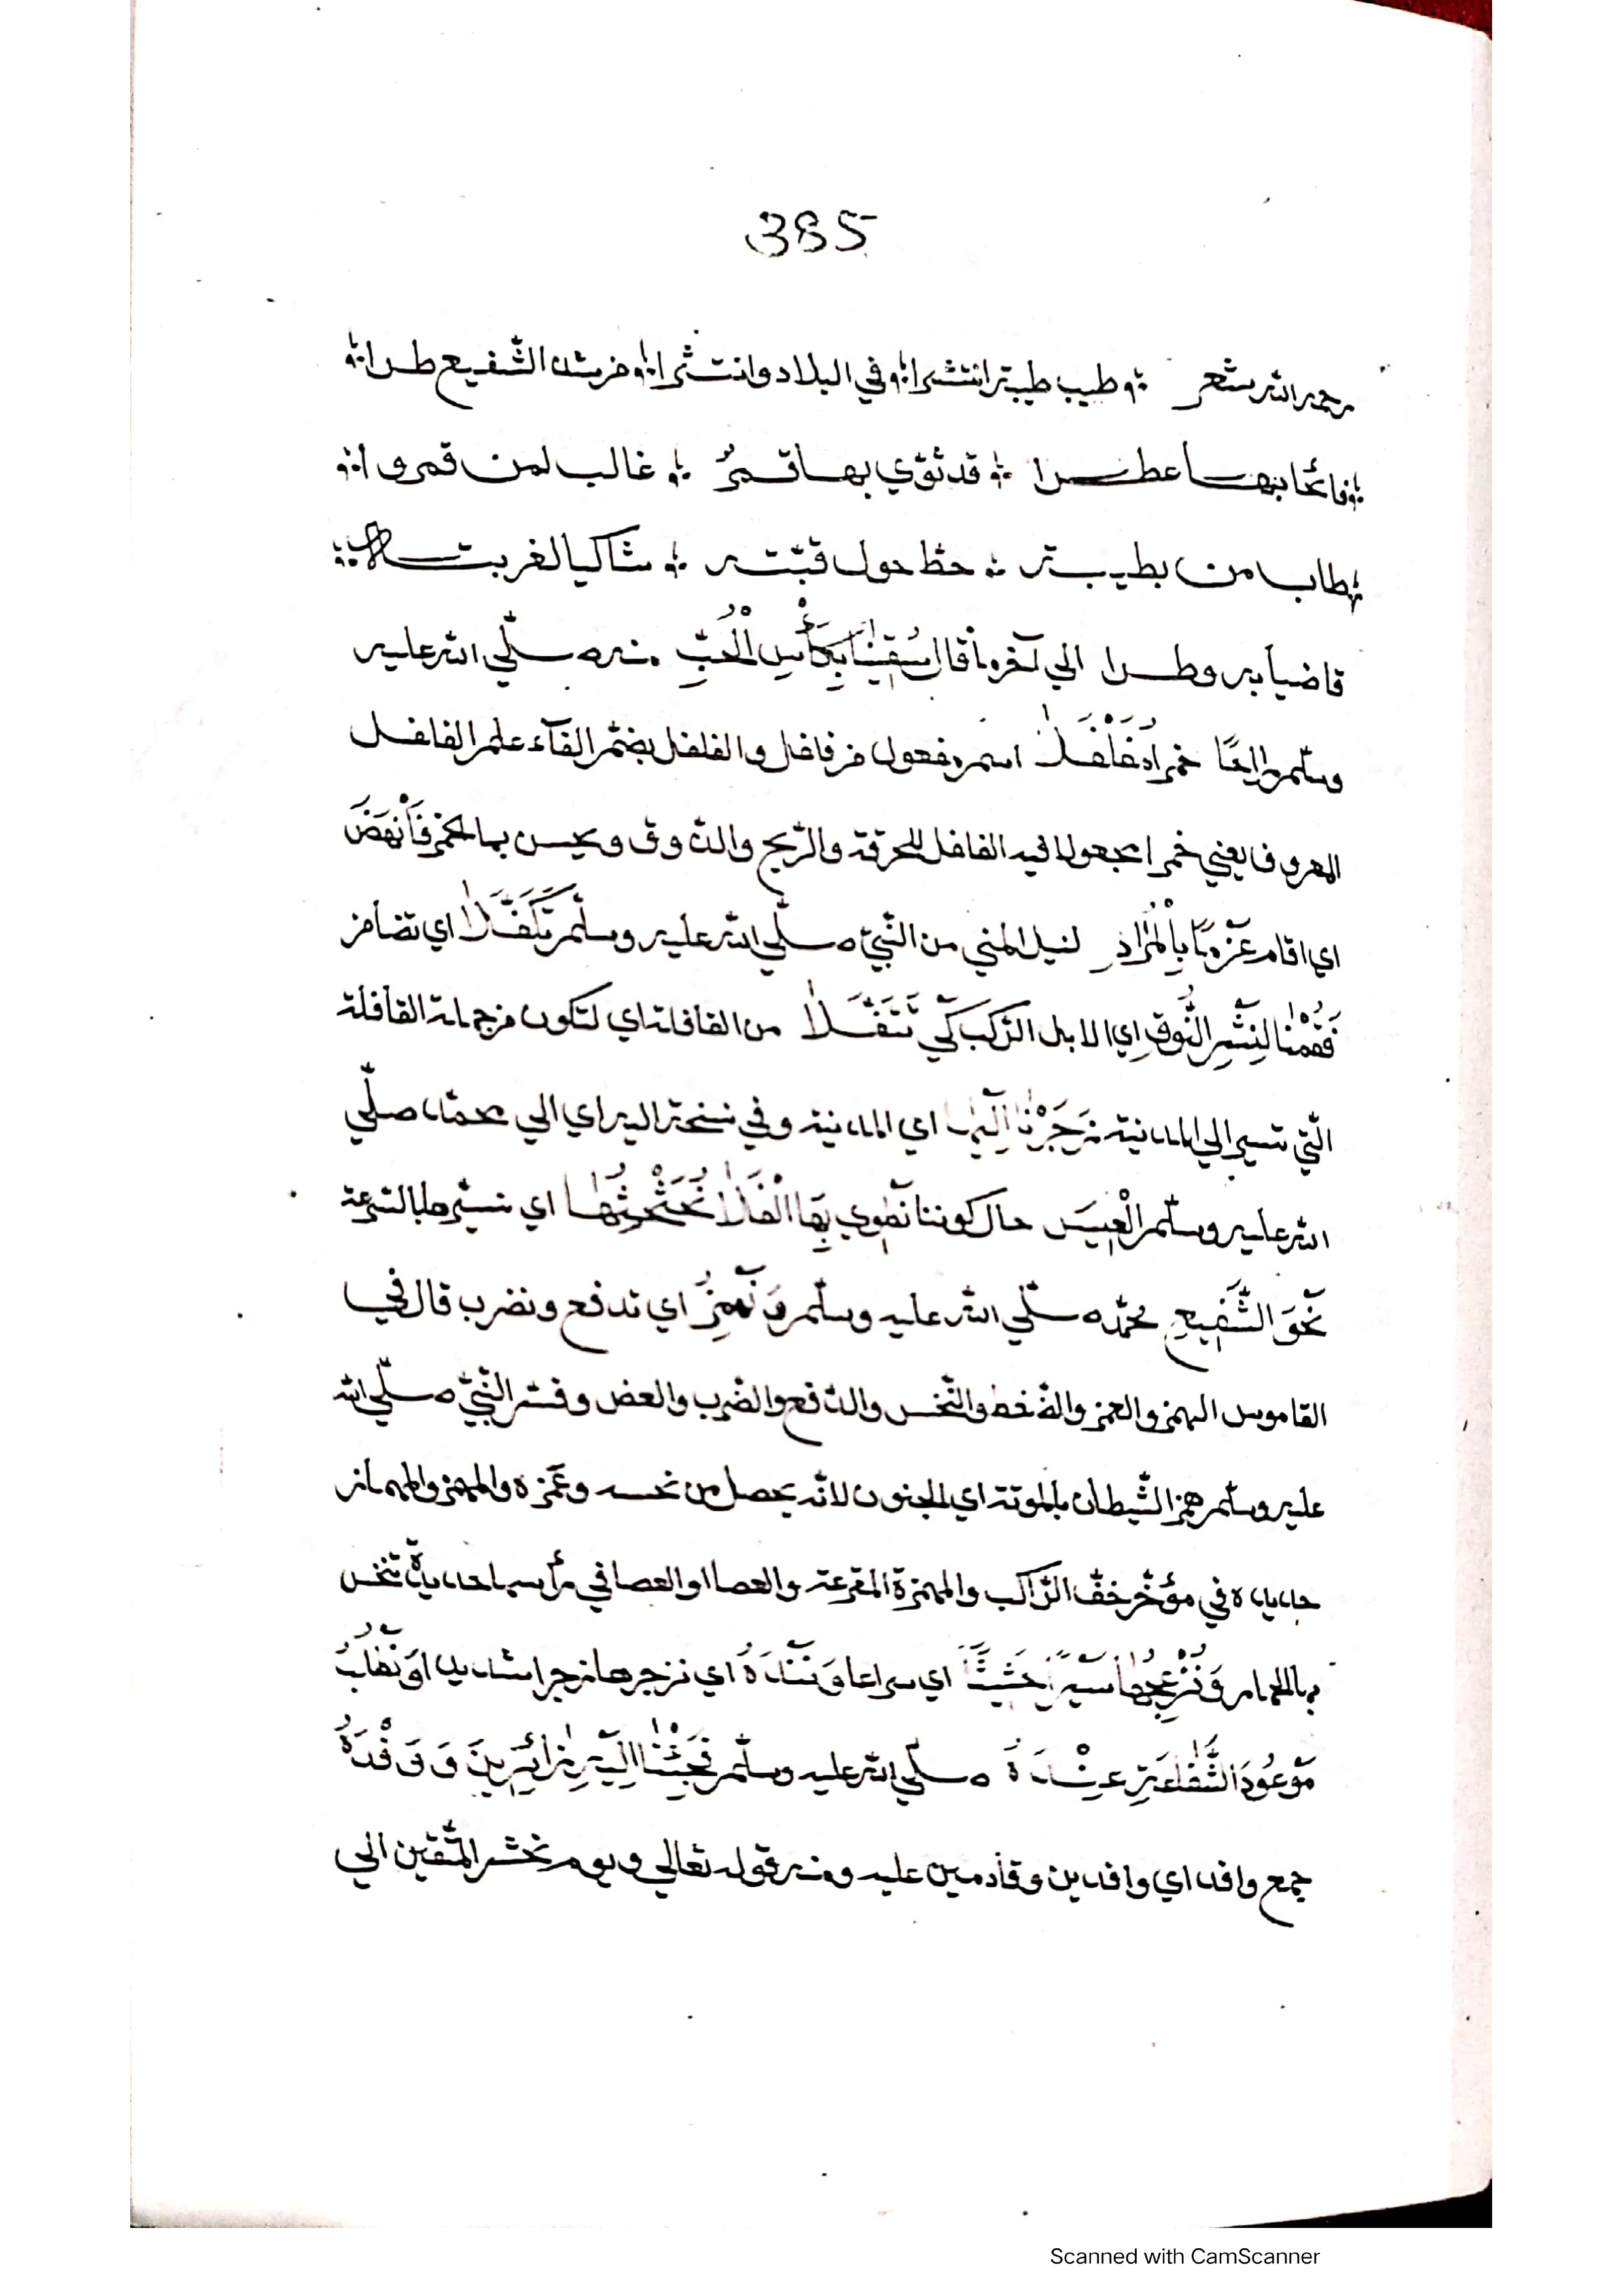 385
رحمه الله شعر ؞ طيب طيبة انتشرا ؞ في البلاد وانتثرا ؞ من شذ الشفيع طرا ؞
؞ فائحا بها عطرا ؞ قد ثوي بها قمرٌ ؞ غالب لمن قمروا ؞
؞ طاب من بطيبته ؞ حظ حول قبّته ؞ شاكيا لغربته ؞
قاضيا به وطرا الي آخره ما قال اسُقِينَا بِكَأْسِ الْحُبِّ منه صلّي الله عليه
وسلّم خمرا مُفَلْفَلاً اسم مفعول من فلفل والفلفل بضمّ الفآء علم الفلفل
المعروف يعني خمرا مجعولا فيه الفلفل للحرقة والرّيح والذّوق ويحسن بها الخمر فَأَنْهَضَ
اي اقام عَزْمًا بِالْمُرَادِ لنيل المني من النّبيّ صلّي الله عليه وسلّم تَكَفَّلاَ اي تضامن
فَقُمْنَا لِنَشْرِ النُّوقِ اي الابل الرّكب كَيْ تَتَقَفَّلاَ من القافلة اي لتكون من جملة القافلة
الّتي تسير الي المدينة زَجَرْنَا اِلَيْهَا اي المدينة وفي نسخة اليه اي الي محمّد صلّي
الله عليه وسلّم الْعِيسَ حال كوننا نَطْوِي بِهَا الْفَلاَ نُحَثْحِثُهَا اي نسيّرها بالسّرعة
نَحْوَ الشَّفِيعِ محمّد صلّي الله عليه وسلّم وَنَهْمِزُ اي ندفع ونضرب قال في
القاموس الهمز والغمز والضّغط والنّخس والدّفع والضّرب والعض وفسّر النّبيّ صلّي الله
عليه وسلّم همز الشّيطان بالموتة اي الجنون لانّه يحصل من نخسه وغمزه والمهمز والمهماز
حديدة في مؤخّر خفّ الرّاكب والمهمزة المقرعة والعصا او العصا في رأسها حديدةٌ تنخس
بها الحمار وَنُزْعِجُهَا سَيْرًا حَثِيثًا اي سراعا وَنَنْدَهُ اي نزجرها زجرا شديدا وَنَطْلُبُ
مَوْعُودَ الشَّفَاعَةِ عِنْدَهُ صلّي الله عليه وسلّم فَجِئْنَا اِلَيْهِ زَائِرِينَ وَوَفْدُهُ
جمع وافد اي وافدين وقادمين عليه ومنه قوله تعالي ويوم نحشر المتّقين الي
Scanned with CamScanner